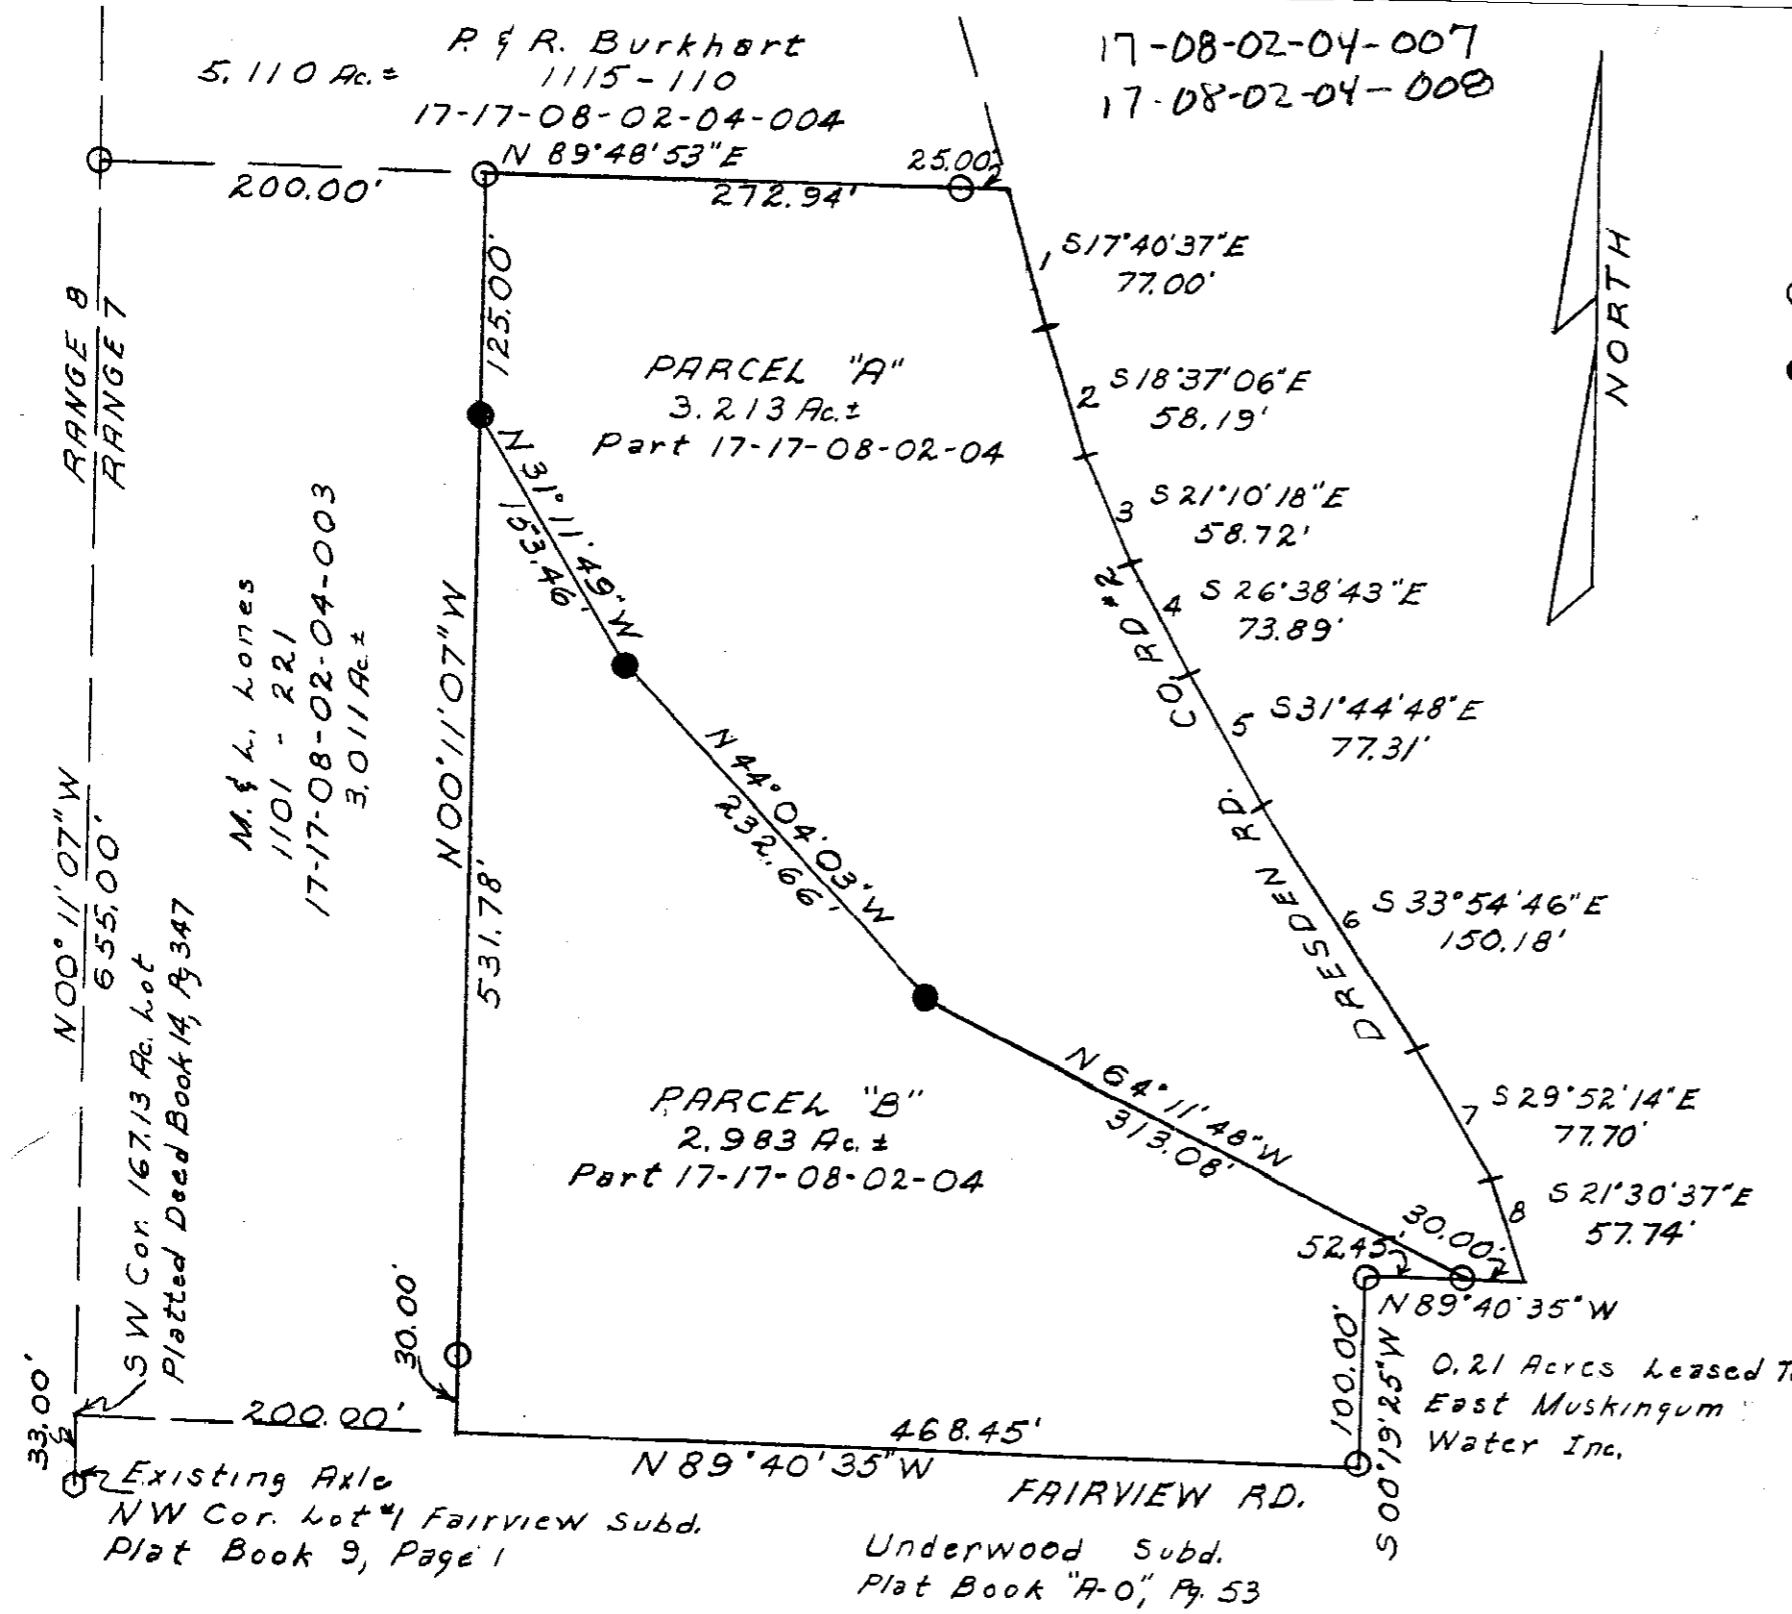 P. & R. Burkhart
1115 - 110
17-17-08-02-04-004
5.110 Ac.±
17-08-02-04-007
17-08-02-04-008
N 89°48'53"E
200.00'
272.94'
25.00'
125.00'
NORTH
RANGE 8
RANGE 7
1 S17°40'37"E
77.00'
2 S18°37'06"E
58.19'
3 S21°10'18"E
58.72'
4 S26°38'43"E
73.89'
5 S31°44'48"E
77.31'
6 S33°54'46"E
150.18'
7 S29°52'14"E
77.70'
8 S21°30'37"E
57.74'
PARCEL "A"
3.213 Ac.±
Part 17-17-08-02-04
N31°11'49"W
153.46'
N44°04'03"W
232.66'
N64°11'48"W
313.08'
DRESDEN RD. CO. RD #2
M. & L. Lones
1101 - 221
17-17-08-02-04-003
3.011 Ac.±
N00°11'07"W
531.78'
N00°11'07"W
655.00'
SW Cor. 167.13 Ac. Lot
Platted Deed Book 14, Pg 347
PARCEL "B"
2.983 Ac.±
Part 17-17-08-02-04
52.45'
30.00'
N89°40'35"W
100.00'
S00°19'25"W
0.21 Acres Leased To
East Muskingum
Water Inc.
30.00'
33.00'
200.00'
468.45'
N89°40'35"W
FAIRVIEW RD.
Existing Axle
NW Cor. Lot #1 Fairview Subd.
Plat Book 9, Page 1
Underwood Subd.
Plat Book "A-O", Pg. 53